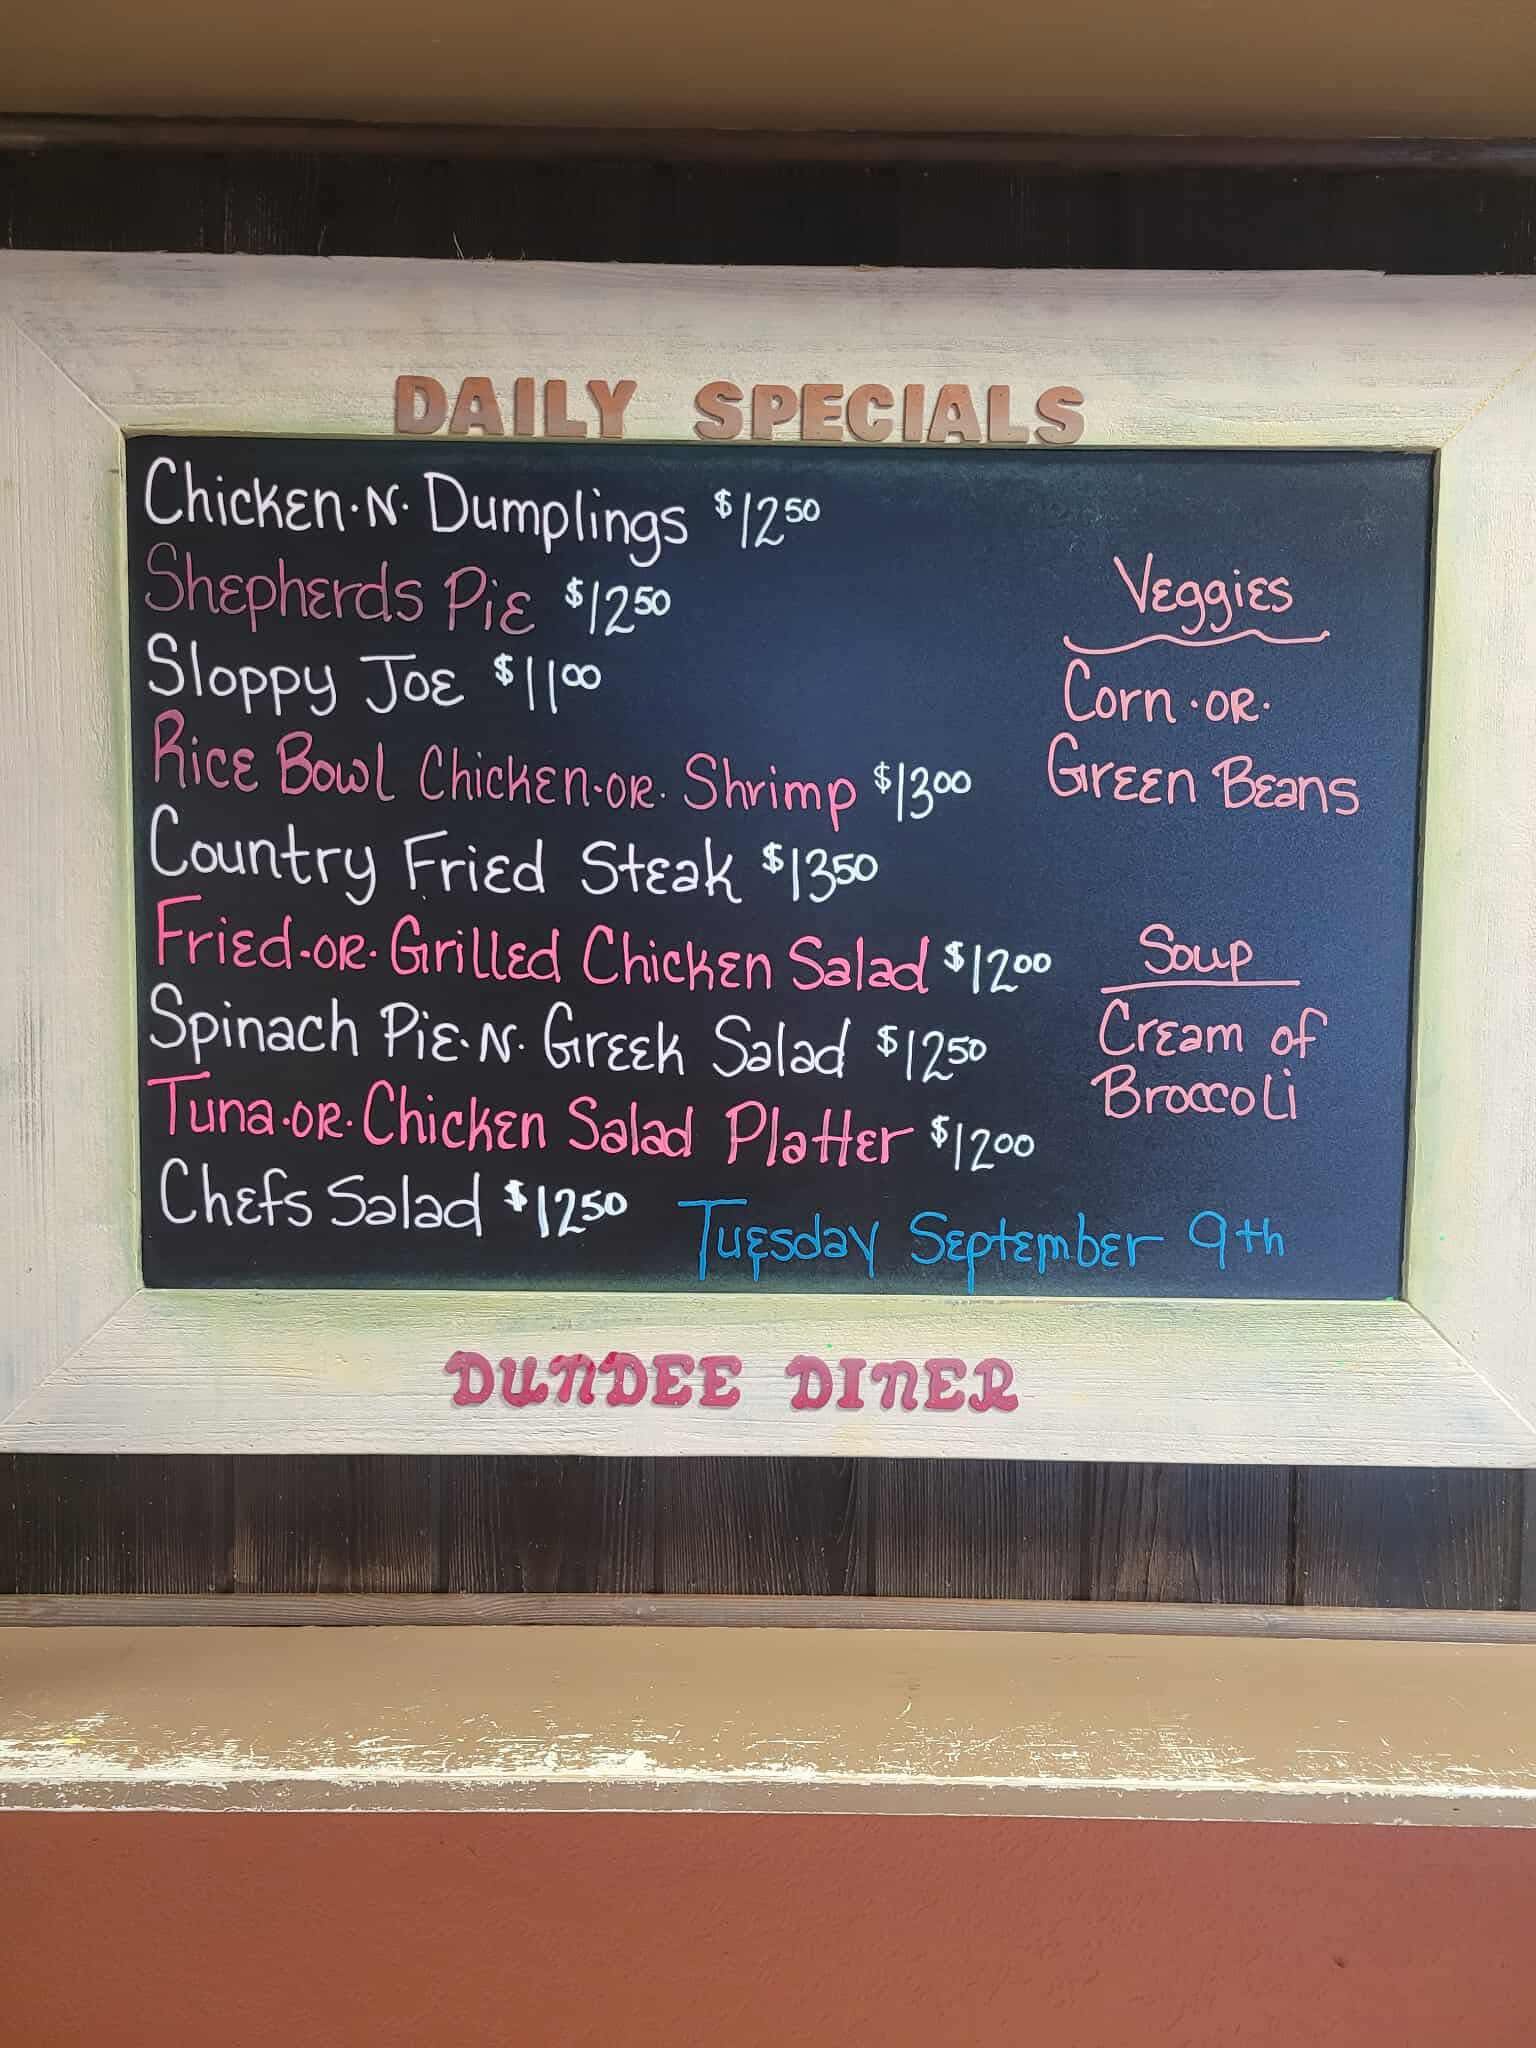 DAILY SPECIALS
Chicken·N·Dumplings $12.50
Shepherds Pie $12.50
Sloppy Joe $11.00
Rice Bowl Chicken·or·Shrimp $13.00
Country Fried Steak $13.50
Fried·or·Grilled Chicken Salad $12.00
Spinach Pie·N·Greek Salad $12.50
Tuna·or·Chicken Salad Platter $12.00
Chefs Salad $12.50
Veggies
Corn·or·
Green Beans
Soup
Cream of
Broccoli
Tuesday September 9th
DUNDEE DINER